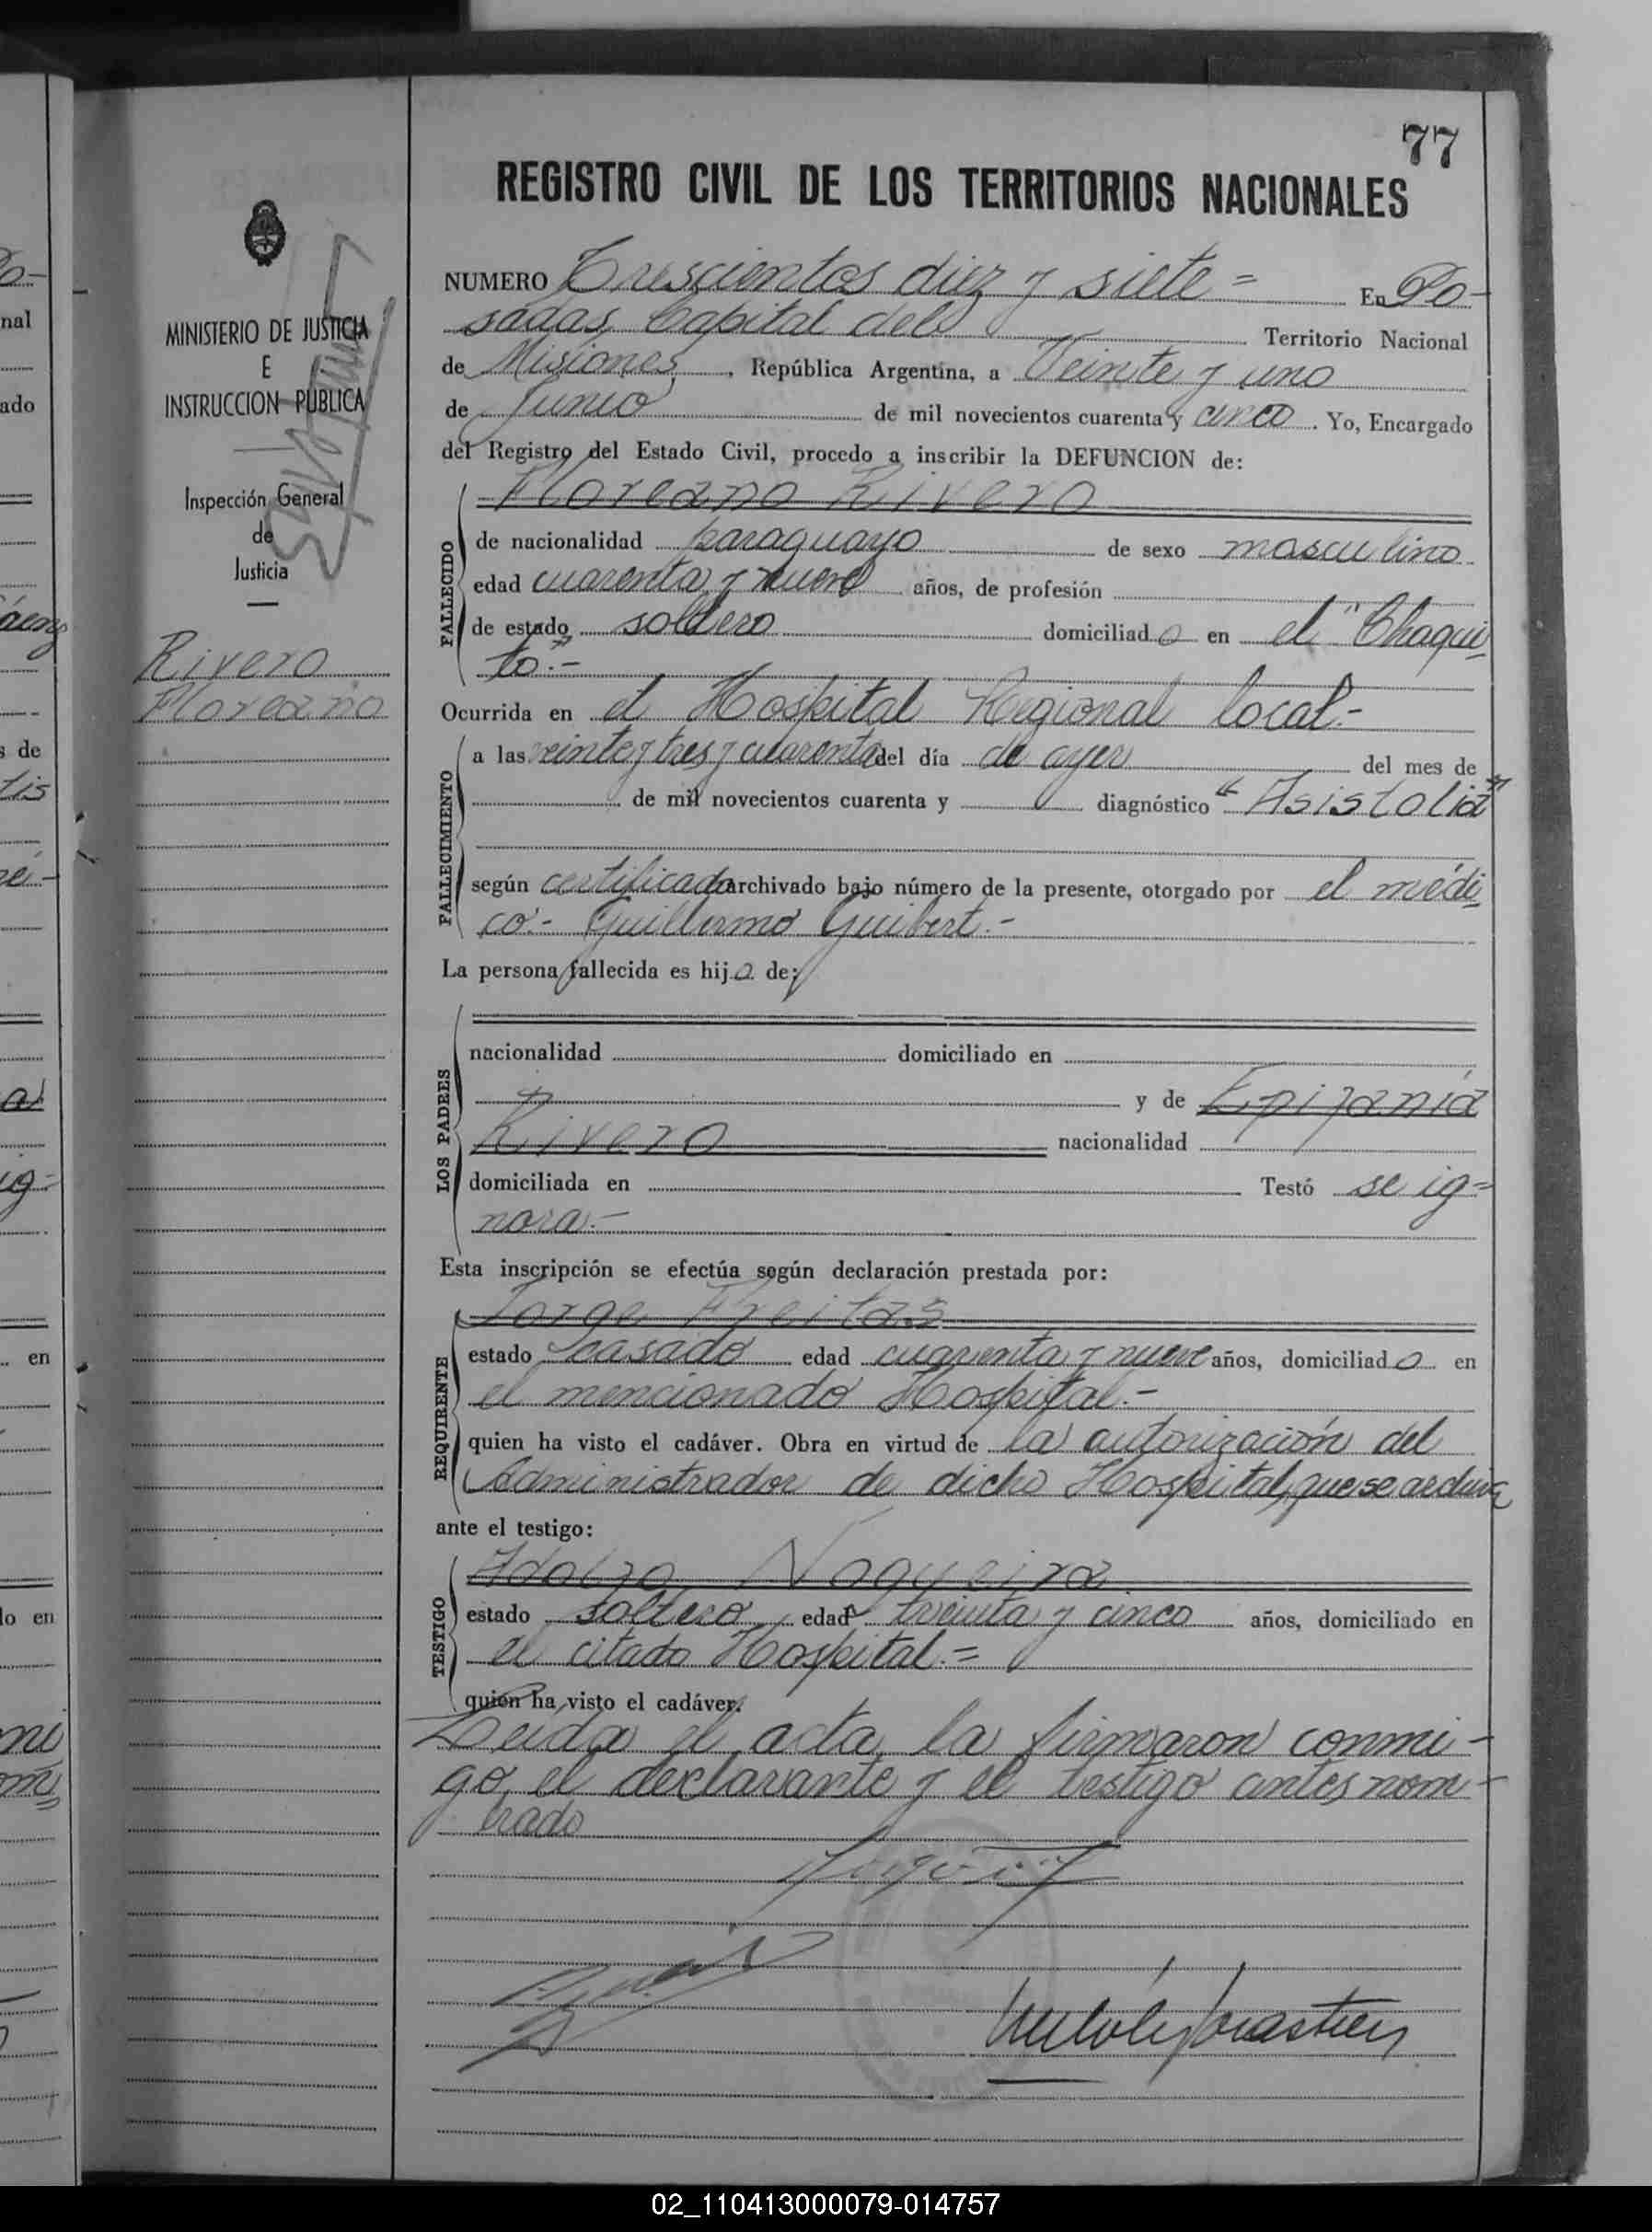 77
REGISTRO CIVIL DE LOS TERRITORIOS NACIONALES
NUMERO Trescientos diez y siete = En Po-
sadas, Capital del Territorio Nacional
de Misiones, República Argentina, a Veinte y uno
de Junio de mil novecientos cuarenta y cinco. Yo, Encargado
del Registro del Estado Civil, procedo a inscribir la DEFUNCION de:
Floreano Rivero
FALLECIDO
de nacionalidad paraguayo de sexo masculino
edad cuarenta y nueve años, de profesión
de estado soltero domiciliado en el "Chaqui-
to".-
Ocurrida en el Hospital Regional local.-
FALLECIMIENTO
a las veinte y tres y cuarenta del día de ayer del mes de
de mil novecientos cuarenta y diagnóstico "Asistolia"
según certificado archivado bajo número de la presente, otorgado por el médi-
co.- Guillermo Guibert.-
La persona fallecida es hijo de:
LOS PADRES
nacionalidad domiciliado en
y de Epifania
Rivero nacionalidad
domiciliada en Testó se ig=
nora.-
Esta inscripción se efectúa según declaración prestada por:
Jorge Freitas
REQUIRENTE
estado casado edad cuarenta y nueve años, domiciliado en
el mencionado Hospital.-
quien ha visto el cadáver. Obra en virtud de la autorización del
Administrador de dicho Hospital, que se archiva
ante el testigo:
Adolfo Nogueira
TESTIGO
estado soltero edad treinta y cinco años, domiciliado en
el citado Hospital.=
quien ha visto el cadáver.
Leida el acta, la firmaron conmi-
go, el declarante y el testigo antes nom-
brado
MINISTERIO DE JUSTICIA
E
INSTRUCCION PUBLICA
Inspección General
de
Justicia
Rivero
Floreano
nal
ado
s de
en
lo en
02_110413000079-014757